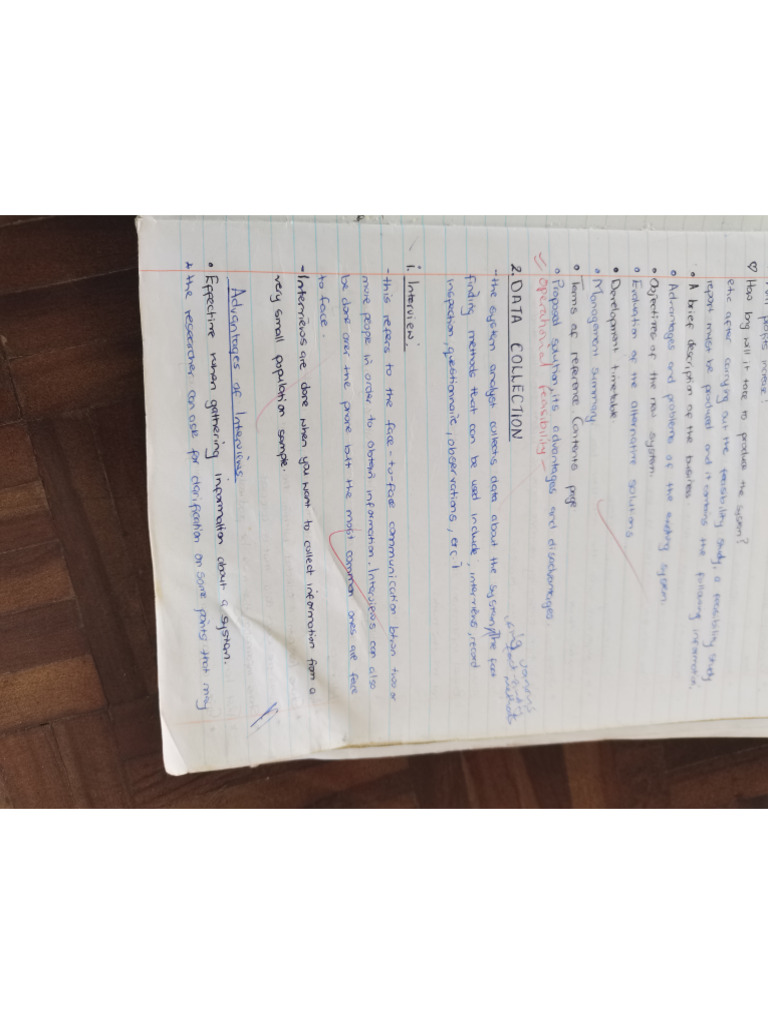 profits increase?
♡ How long will it take to produce the system?
etc after carrying out the feasibility study, a feasibility study
report must be produced and it contains the following information.
• A brief description of the business.
• Advantages and problems of the existing system.
• Objectives of the new system.
• Evaluation of the alternative solutions
• Development timetable
• Management summary
• Terms of reference Contents page
• Proposed solution, its advantages and disadvantages.
operational feasibility
2. DATA COLLECTION
using various
fact-finding
methods
-the system analyst collects data about the system, the fact
finding methods that can be used include; interviews, record
inspection, questionnaire, observations, etc.
i. Interview:
-this refers to the face-to-face communication btwn two or
more people in order to obtain information. Interviews can also
be done over the phone butt the most common ones are face
to face.
-Interviews are done when you want to collect information from a
very small population sample.
Advantages of Interviews
• Effective when gathering information about a system.
the researcher can ask for clarification on some points that may